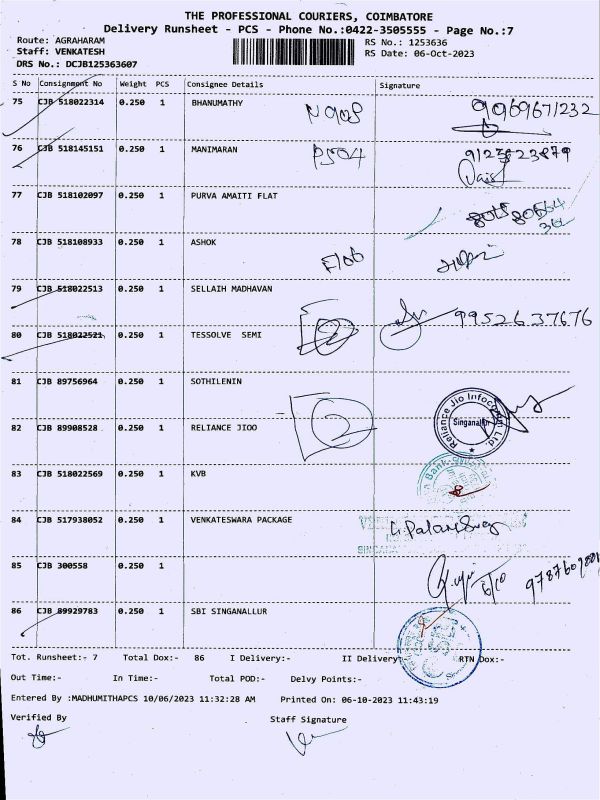 THE PROFESSIONAL COURIERS, COIMBATORE
Delivery Runsheet - PCS - Phone No.:0422-3505555 - Page No.:7
Route: AGRAHARAM
RS No.: 1253636
Staff: VENKATESH
RS Date: 06-Oct-2023
DRS No.: DCJB125363607
S No Consignment No Weight PCS Consignee Details Signature
75 CJB 518022314 0.250 1 BHANUMATHY N908 9969671232
76 CJB 518145151 0.250 1 MANIMARAN P504
77 CJB 518102097 0.250 1 PURVA AMAITI FLAT
78 CJB 518108933 0.250 1 ASHOK F106
79 CJB 518022513 0.250 1 SELLAIH MADHAVAN 9952637676
80 CJB 518022521 0.250 1 TESSOLVE SEMI 2
81 CJB 89756964 0.250 1 SOTHILENIN
82 CJB 89908528 0.250 1 RELIANCE JIOO 2 Reliance Jio Infocomm Ltd. Singanallur
83 CJB 518022569 0.250 1 KVB
84 CJB 517938052 0.250 1 VENKATESWARA PACKAGE
85 CJB 300558 0.250 1 6/10
86 CJB 89929783 0.250 1 SBI SINGANALLUR
Tot. Runsheet:- 7 Total Dox:- 86 I Delivery:- II Delivery RTN Dox:-
Out Time:- In Time:- Total POD:- Delvy Points:-
Entered By :MADHUMITHAPCS 10/06/2023 11:32:28 AM Printed On: 06-10-2023 11:43:19
Verified By Staff Signature